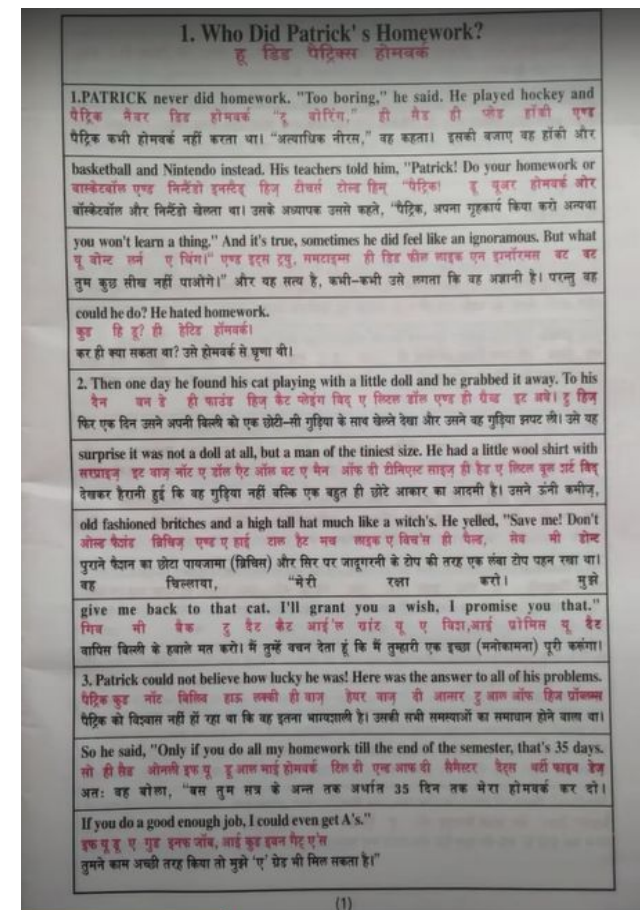 1. Who Did Patrick' s Homework?
हू डिड पैट्रिक्स होमवर्क
1.PATRICK never did homework. "Too boring," he said. He played hockey and
पैट्रिक नैवर डिड होमवर्क "टू बोरिंग," ही सैड ही प्लेड हॉकी एण्ड
पैट्रिक कभी होमवर्क नहीं करता था। "अत्याधिक नीरस," वह कहता। इसकी बजाए वह हॉकी और
basketball and Nintendo instead. His teachers told him, "Patrick! Do your homework or
बास्केटबॉल एण्ड निन्टैंडो इनस्टैड हिज़ टीचर्स टोल्ड हिम् "पैट्रिक! डू यूअर होमवर्क ओर
बॉस्केटबॉल और निन्टैंडो खेलता था। उसके अध्यापक उससे कहते, "पैट्रिक, अपना गृहकार्य किया करो अन्यथा
you won't learn a thing." And it's true, sometimes he did feel like an ignoramus. But what
यू वोन्ट लर्न ए थिंग।" एण्ड इट्स ट्रयु, समटाइम्स ही डिड फील लाइक एन इग्नॉरमस बट वट
तुम कुछ सीख नहीं पाओगे।" और यह सत्य है, कभी-कभी उसे लगता कि वह अज्ञानी है। परन्तु वह
could he do? He hated homework.
कुड हि डू? ही हेटिड हॉमवर्क।
कर ही क्या सकता था? उसे होमवर्क से घृणा थी।
2. Then one day he found his cat playing with a little doll and he grabbed it away. To his
दैन वन डे ही फाउंड हिज़ कैट प्लेइंग विद् ए लिटल डॉल एण्ड ही ग्रैब्ड इट अवे। टु हिज़
फिर एक दिन उसने अपनी बिल्ली को एक छोटी-सी गुड़िया के साथ खेलते देखा और उसने वह गुड़िया झपट ली। उसे यह
surprise it was not a doll at all, but a man of the tiniest size. He had a little wool shirt with
सरप्राइज़ इट वाज़ नॉट ए डॉल ऐट ऑल बट ए मैन ऑफ दी टीनिएस्ट साइज़ ही हैड ए लिटल वूल शर्ट विद्
देखकर हैरानी हुई कि वह गुड़िया नहीं बल्कि एक बहुत ही छोटे आकार का आदमी है। उसने ऊंनी कमीज़,
old fashioned britches and a high tall hat much like a witch's. He yelled, "Save me! Don't
ओल्ड फैशंड ब्रिचिज़ एण्ड ए हाई टाल हैट मच लाइक ए विच'स ही यैल्ड, सेव मी डोन्ट
पुराने फैशन का छोटा पायजामा (ब्रिचिस) और सिर पर जादूगरनी के टोप की तरह एक लंबा टोप पहन रखा था।
वह चिल्लाया, "मेरी रक्षा करो। मुझे
give me back to that cat. I'll grant you a wish, I promise you that."
गिव मी बैक टु दैट कैट आई'ल ग्रांट यू ए विश,आई प्रोमिस यू दैट
वापिस बिल्ली के हवाले मत करो। मैं तुम्हें वचन देता हूं कि मैं तुम्हारी एक इच्छा (मनोकामना) पूरी करूंगा।
3. Patrick could not believe how lucky he was! Here was the answer to all of his problems.
पैट्रिक कुड नॉट बिलिव हाऊ लक्की ही वाज़ हेयर वाज़ दी आन्सर टु आल ऑफ हिज प्रॉब्लम्स
पैट्रिक को विश्वास नहीं हो रहा था कि वह इतना भाग्यशाली है। उसकी सभी समस्याओं का समाधान होने वाला था।
So he said, "Only if you do all my homework till the end of the semester, that's 35 days.
सो ही सैड ओनली इफ यू डू आल माई होमवर्क टिल दी एन्ड आफ दी सैमैस्टर दैट्स थर्टी फाइव डेज़
अतः वह बोला, "बस तुम सत्र के अन्त तक अर्थात 35 दिन तक मेरा होमवर्क कर दो।
If you do a good enough job, I could even get A's."
इफ यू डू ए गुड इनफ जॉब, आई कुड इवन गैट् ए'स
तुमने काम अच्छी तरह किया तो मुझे 'ए' ग्रेड भी मिल सकता है।"
(1)